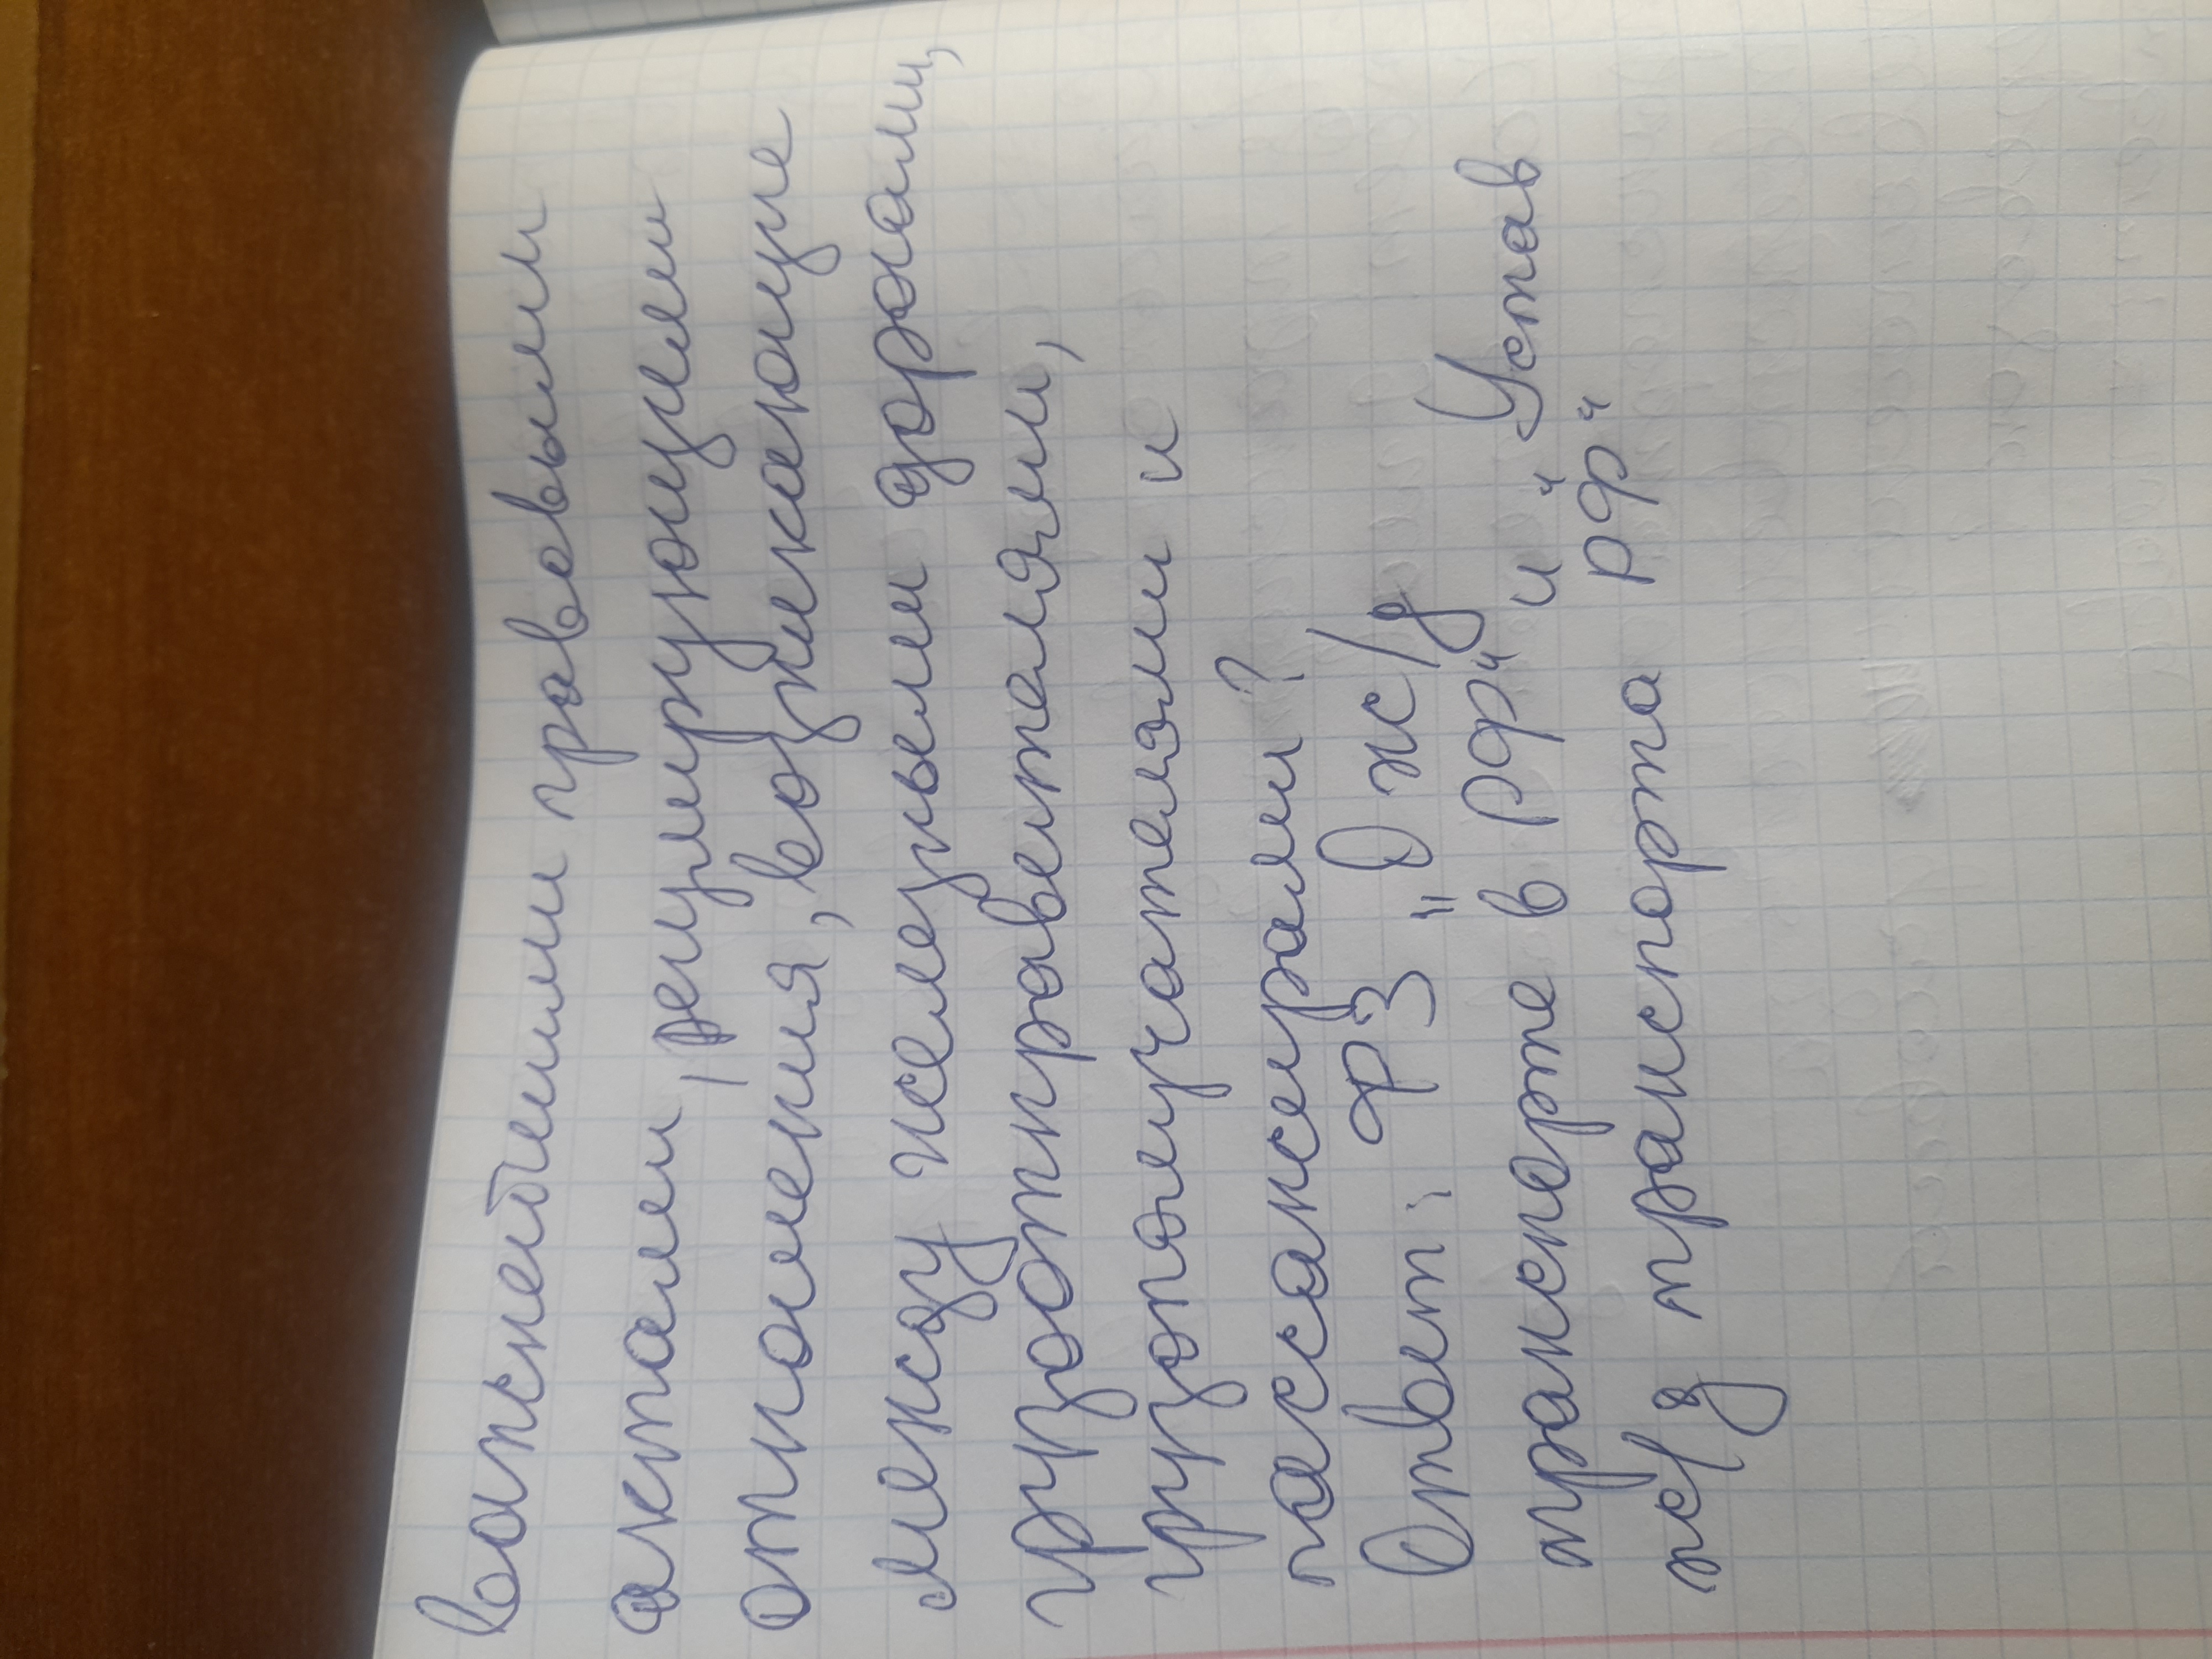 важнейшими правовыми
актами, регулирующими
отношения, возникающие
между железными дорогами,
грузоотправителями,
грузополучателями и
пассажирами?
Ответ: ФЗ "О ж/д
транспорте в РФ" и "Устав
ж/д транспорта РФ"